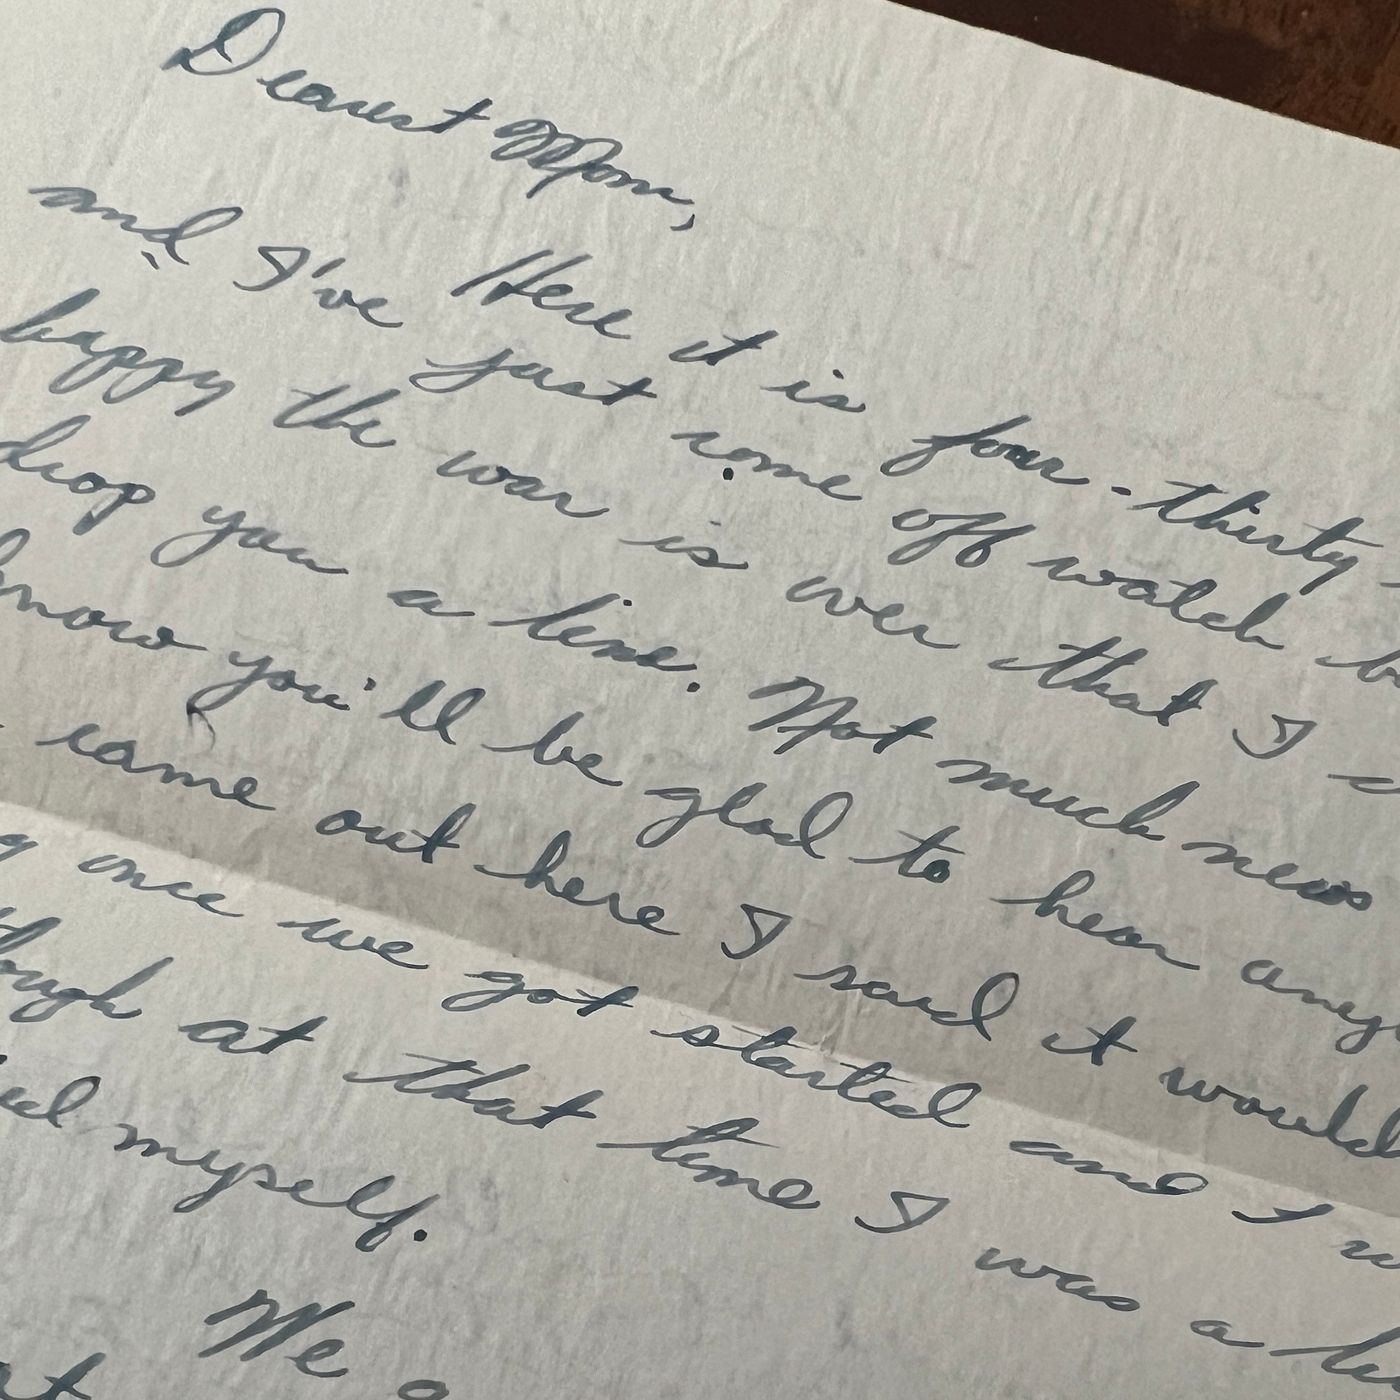 Dearest Mom,
Here it is four-thirty
and I've just come off watch
happy the war is over that I
drop you a line. Not much news
know you'll be glad to hear
came out here I said it would
once we got started and I
though at that time I was a
myself.
We